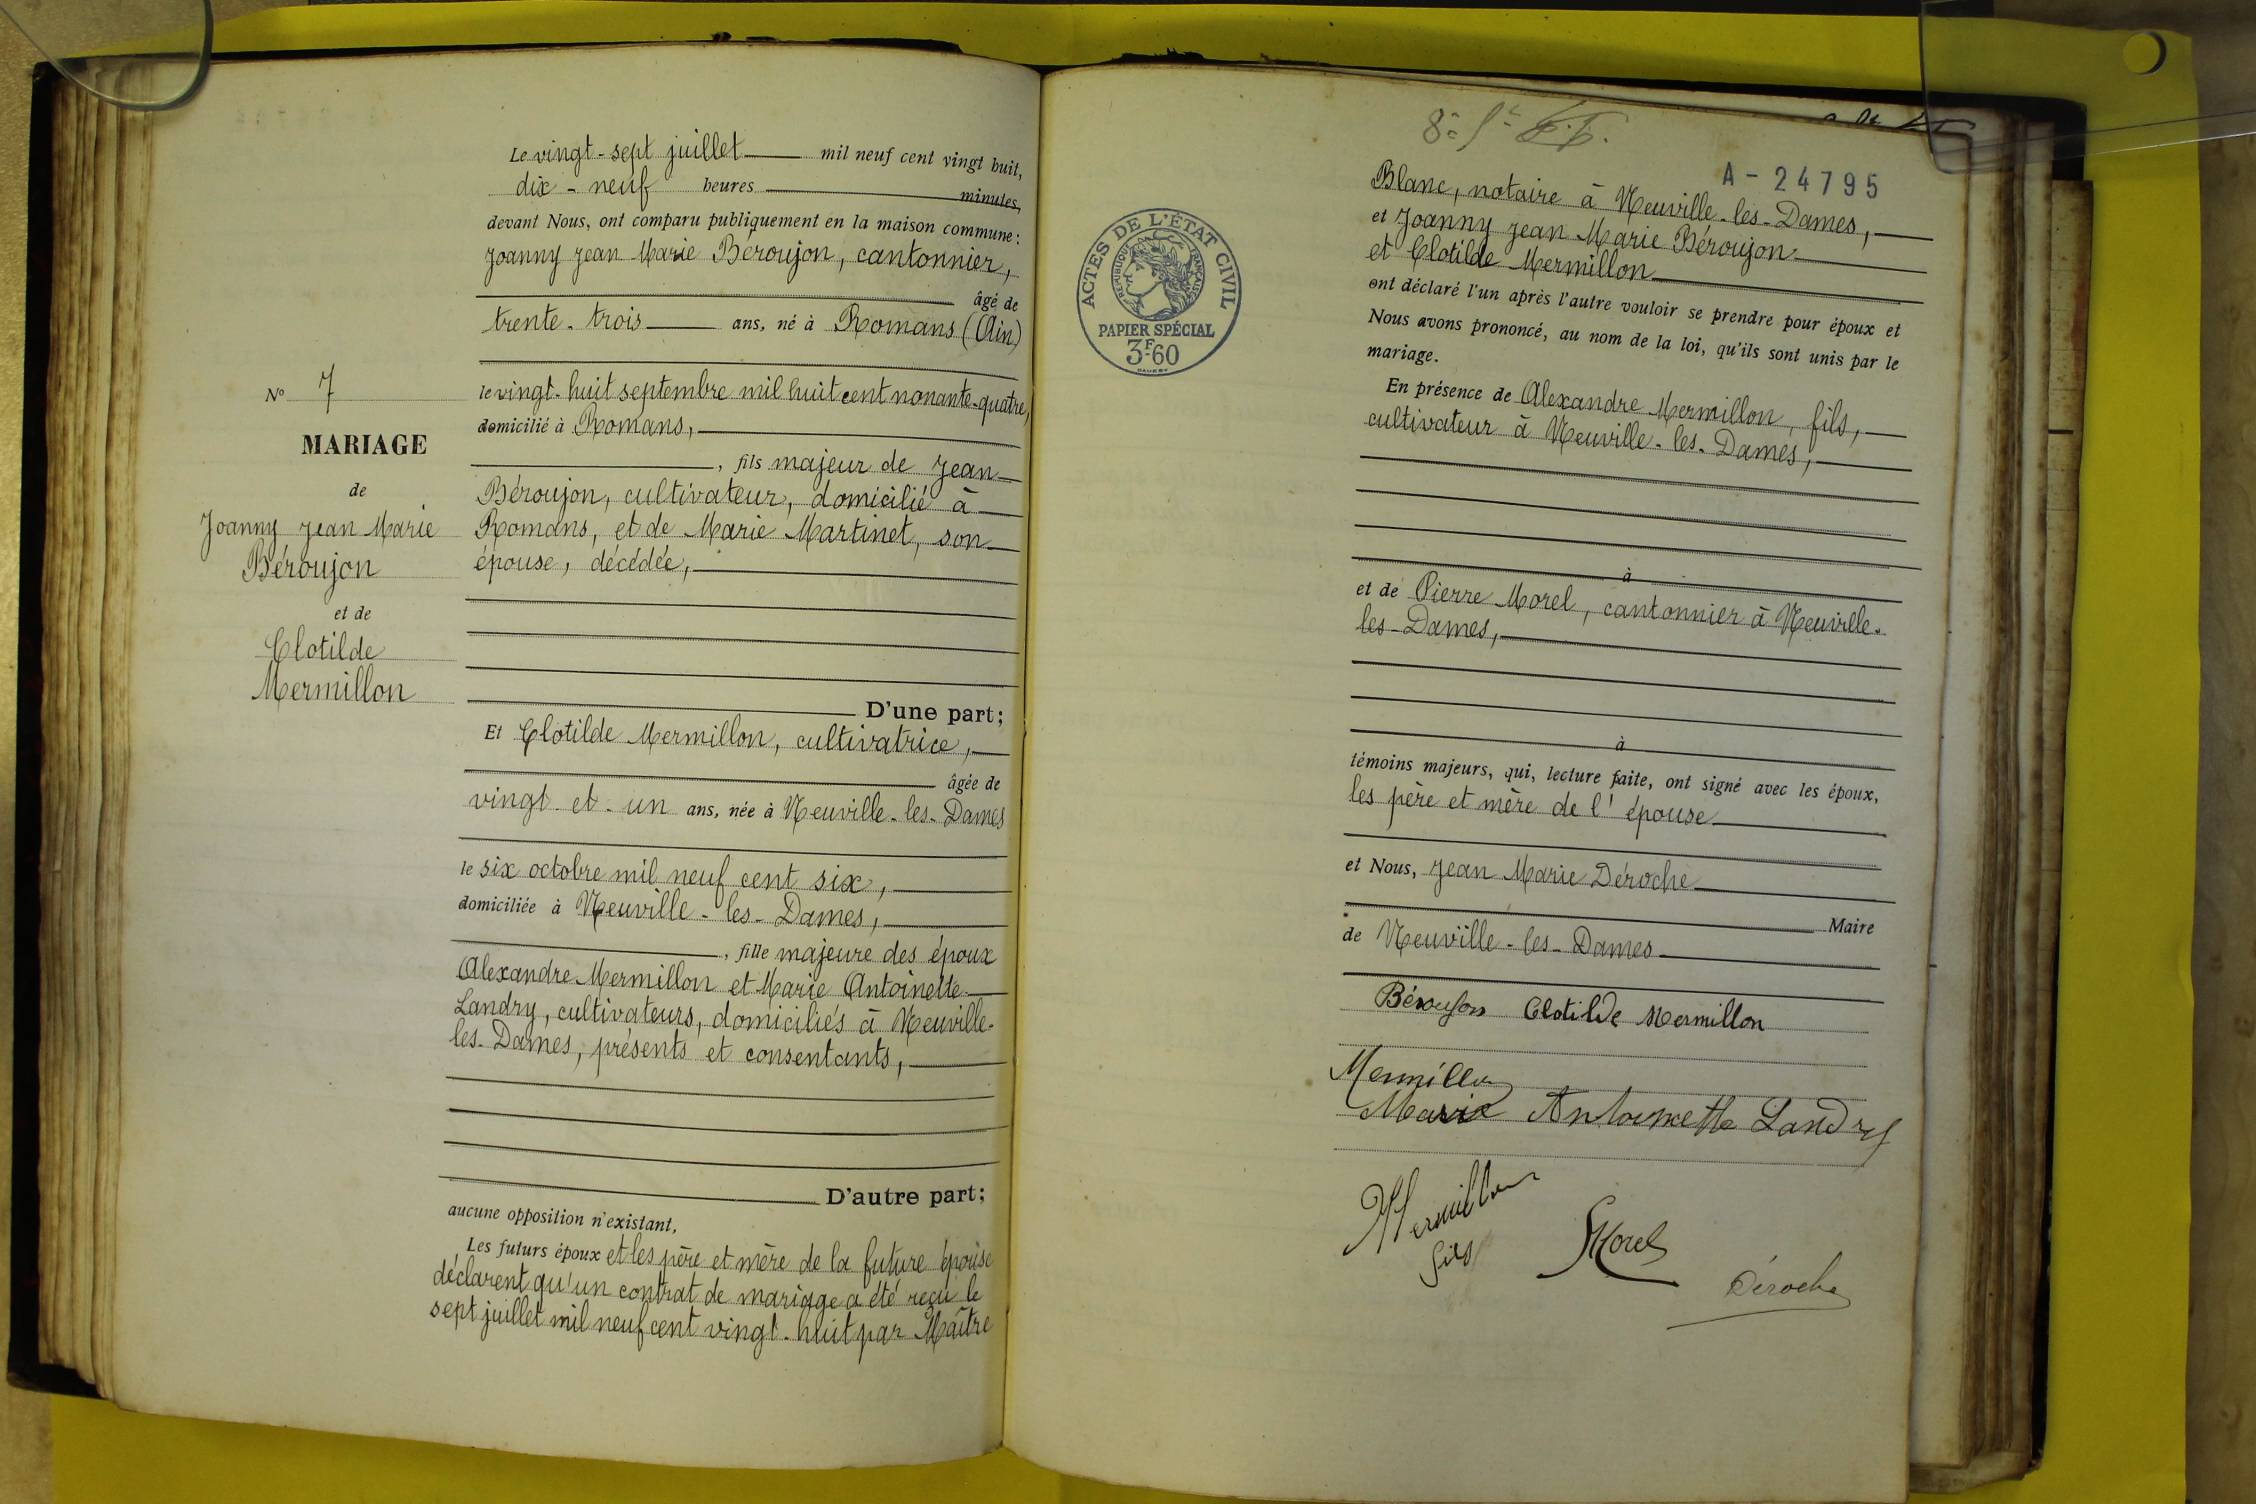 Le vingt-sept juillet mil neuf cent vingt huit,
dix-neuf heures minutes,
devant Nous, ont comparu publiquement en la maison commune :
Joanny Jean Marie Béroujon, cantonnier,
âgé de
trente-trois ans, né à Romans (Ain)
le vingt-huit septembre mil huit cent nonante-quatre,
domicilié à Romans,
, fils majeur de Jean
Béroujon, cultivateur, domicilié à
Romans, et de Marie Martinet, son
épouse, décédée,
D'une part;
Et Clotilde Mermillon, cultivatrice,
âgée de
vingt-et-un ans, née à Neuville-les-Dames
le six octobre mil neuf cent six,
domiciliée à Neuville-les-Dames,
, fille majeure des époux
Alexandre Mermillon et Marie Antoinette
Landry, cultivateurs, domiciliés à Neuville-
les-Dames, présents et consentants,
D'autre part;
aucune opposition n'existant,
Les futurs époux et les père et mère de la future épouse
déclarent qu'un contrat de mariage a été reçu le
sept juillet mil neuf cent vingt-huit par Maître
No 7
MARIAGE
de
Joanny Jean Marie
Béroujon
et de
Clotilde
Mermillon
A-24795
ACTES DE L'ÉTAT CIVIL
RÉPUBLIQUE FRANÇAISE
PAPIER SPÉCIAL
3F.60
Blanc, notaire à Neuville-les-Dames,
et Joanny Jean Marie Béroujon
et Clotilde Mermillon
ont déclaré l'un après l'autre vouloir se prendre pour époux et
Nous avons prononcé, au nom de la loi, qu'ils sont unis par le
mariage.
En présence de Alexandre Mermillon, fils,
cultivateur à Neuville-les-Dames,
à
et de Pierre Morel, cantonnier à Neuville-
les-Dames,
à
témoins majeurs, qui, lecture faite, ont signé avec les époux,
les père et mère de l'épouse
et Nous, Jean Marie Déroche
Maire
de Neuville-les-Dames
Béroujon Clotilde Mermillon
Mermillon
Marie Antoinette Landry
Mermillon
fils
Morel
Déroche